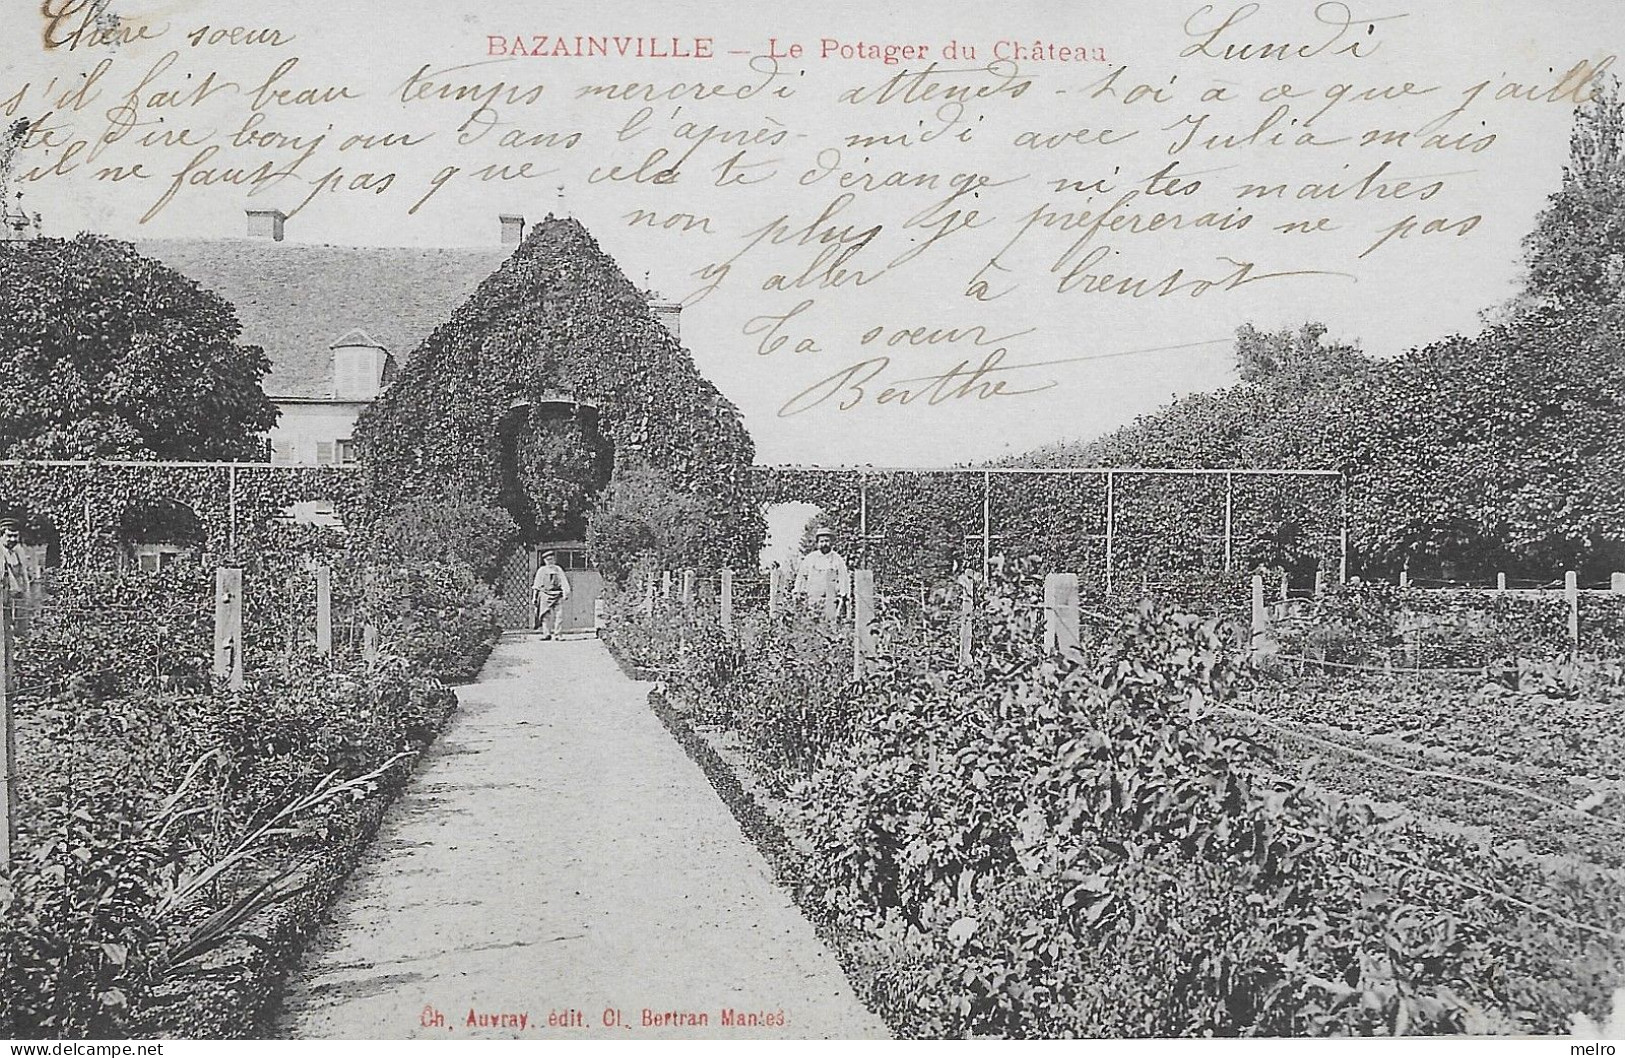 Chère soeur
BAZAINVILLE — Le Potager du Château
Lundi
s'il fait beau temps mercredi attends-toi à ce que j'aille
te dire bonjour dans l'après-midi avec Julia mais
il ne faut pas que cela te dérange ni tes maitres
non plus je préfèrerais ne pas
y aller à bientôt
Ta soeur
Berthe
Ch. Auvray, édit. Cl. Bertran Mantes
melro